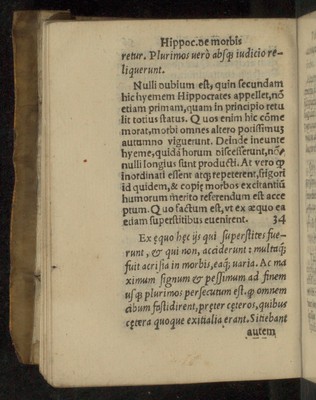 Hippoc. de morbis
retur. Plurimos uerò absq; iudicio re-
liquerunt.
Nulli dubium est, quin secundam
hic hyemem Hippocrates appellet, nō
etiam primam, quam in principio retu
lit totius status. Quos enim hic cōme
morat, morbi omnes altero potissimuз
autumno viguerunt. Deinde ineunte
hyeme, quidā horum discesserunt, nō
nulli longius sunt producti. At vero ꝙ
inordinati essent atq; repeterent, frigori
id quidem, & copię morbos excitantiū
humorum merito referendum est acce
ptum. Quo factum est, vt ex æquo ea
ediam superstitibus euenirent. 34
Ex ęquo hęc ijs qui superstites fue-
runt, & qui non, acciderunt: multaq́;
fuit acrisia in morbis, eaq́; uaria. Ac ma
ximum signum & pessimum ad finem
usq; plurimos persecutum est. ꝙ omnem
cibum fastidirent, pręter cęteros, quibus
cętera quoque exitialia erant. Sitiebant
autem